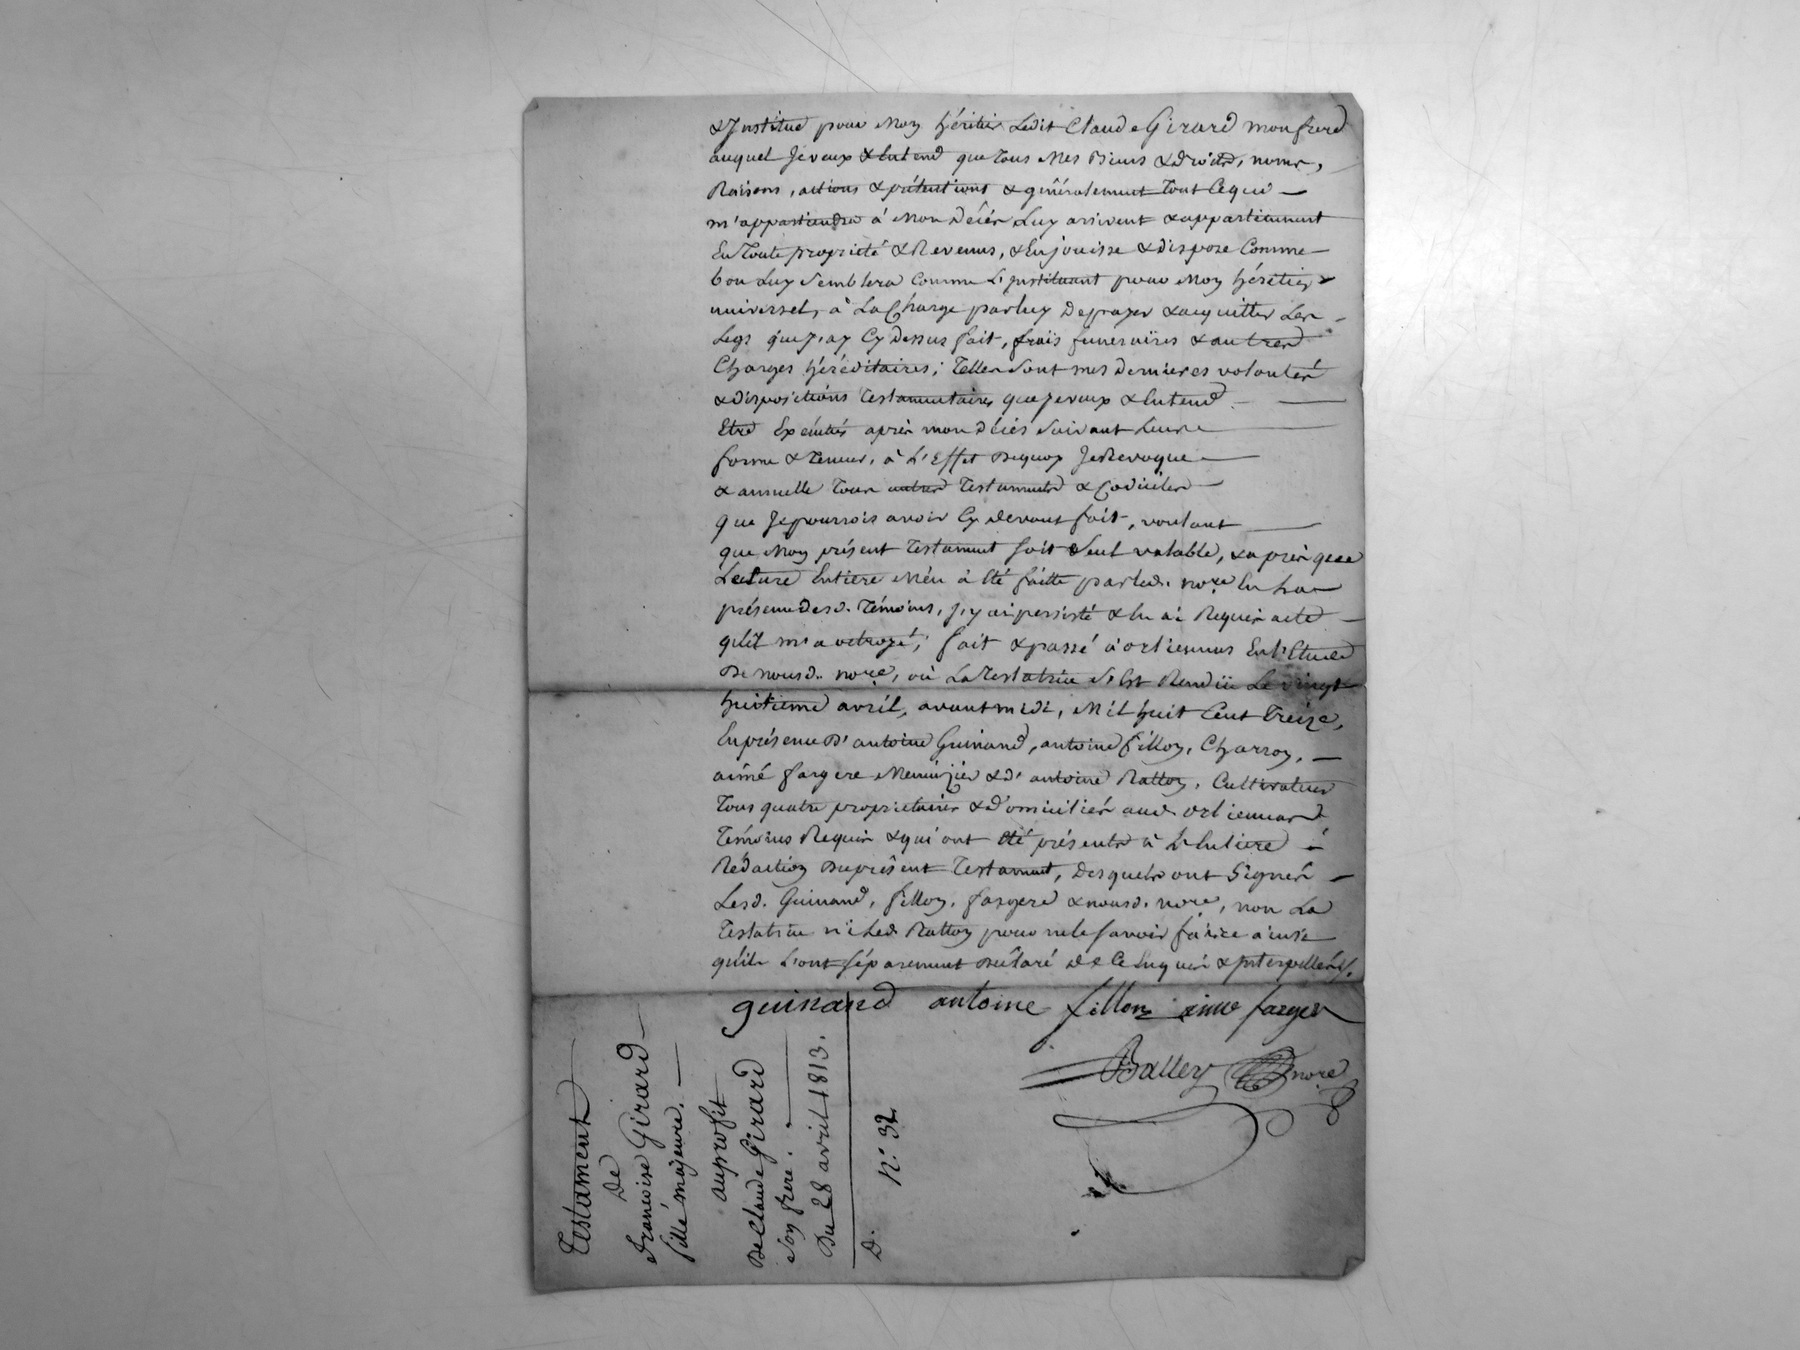 & Institue pour Mon héritier Ledit Claude Girard mon frere
auquel Je veux & Entend que Tous Mes Biens & droits, noms,
Raisons, actions & prétentions & généralement Tout Ce qui
m'appartiendra à Mon décés Luy arrivent & appartiennent
En Toute propriété & Revenus, & En jouisse & dispose Comme
bon Luy Semblera Comme L'Instituant pour Mon héritier
universel, à La Charge par luy De payer & acquitter Les
Legs que J'ay Cy Dessus fait, frais funeraires & autres
Charges héréditaires; Telles Sont mes dernieres volontés
& dispositions Testamentaires que Je veux & Entend
Etre Exécutés après mon Décés Suivant Leurs
forme & Teneur, à L'Effet De quoy Je Revoque
& annulle Tous autres Testaments & Codiciles
que Je pourrois avoir Cy devant fait, voulant
que Mon présent Testament soit Seul valable, & après que
Lecture Entiere M'en à Eté faitte par led. nore. En La
présence des d. Témoins, J'y ai persisté & En ai Requis acte
qu'il m'a octroyé; fait & passé à orlienas En l'Etude
De nous d. nore, où La Testatrice S'Est Rendüe Le vingt
huitieme avril, avant midi, Mil huit Cent Treize,
En présence D'antoine Guinand, antoine fillon, Charron,
aimé fargere Menuizier & d'antoine Ratton, Cultivateur
Tous quatre propriétaires & domiciliés aud. orlienas
Témoins Requis & qui ont Eté présents à L'Entiere
Rédaction Du présent Testament, Desquels ont Signés
Lesd. Guinand, fillon, fargere & nous d. nore, non La
Testatrice ni Led. Ratton pour ne le Savoir faire ainsi
qu'ils L'ont séparement Déclaré de Ce Enquis & Interpellés.
guinand antoine fillon aime farger
Balley nore
Testament
De
françoise Girard
fille majeure.
au profit
De Claude Girard
Son frere.
Du 28 avril 1813.
D. N.º 32